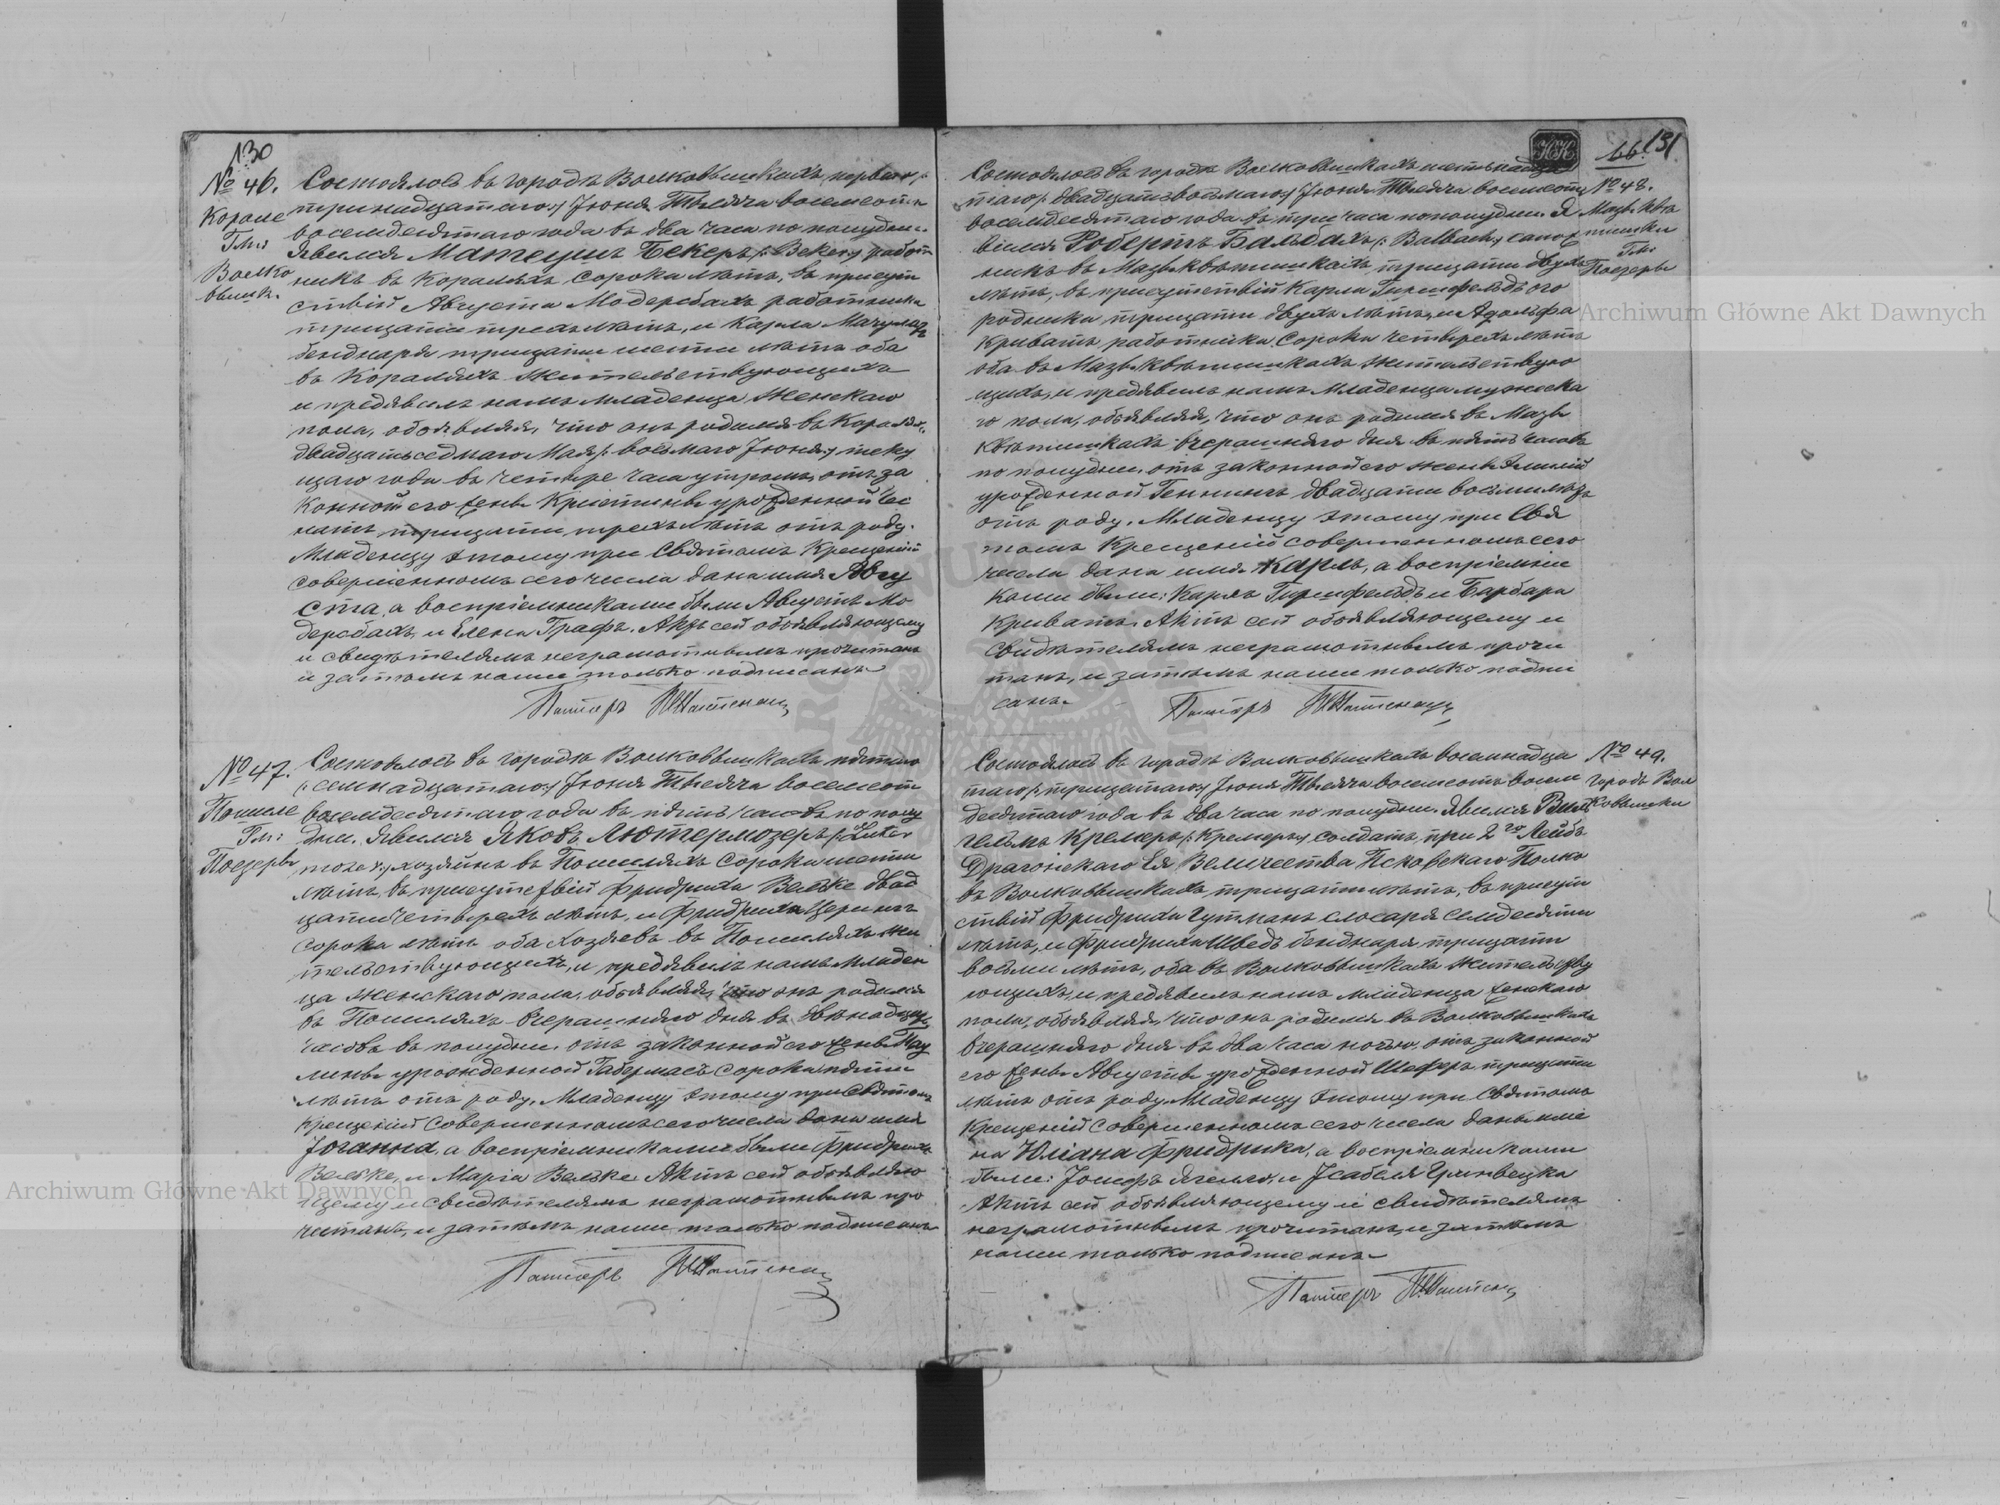 130
№ 46.
Короле
Гми
Волко
вышк.
Состоялось въ городѣ Волковышкахъ, перваго /:
тринадцатаго:/ Іюня Тысяча восемсотъ
восемдесятаго года въ два часа по полудни.
Явился Матеушъ Бекеръ /: Beker:/ работ
никъ въ Королахъ, сорока лѣтъ, въ присут
ствіи Августа Модерсбахъ работника
тридцати трехъ лѣтъ, и Карла
бенднаря тридцати шести лѣтъ оба
въ Королахъ жительствующихъ
и предявилъ намъ младенца Женскаго
пола, объявляя, что онъ родился въ
двадцать седмаго Мая /: восьмаго Іюня:/ теку
щаго года въ четыре часа утромъ, отъ за
конной его жены Кристины урожденной
тридцати трехъ лѣтъ отъ роду.
Младенцу этому при Святомъ Крещеніи
совершенномъ сего числа дана имя Авгу
ста, а воспріемниками были Августъ Мо
дерсбахъ, и Елена Графъ. Актъ сей объявляющему
и свидѣтелямъ неграмотнымъ прочитанъ
и затѣмъ нами только подписанъ
Пасторъ
№ 47.
Пошиле
Гм:
Поезеры
Состоялось въ городѣ Волковышкахъ пятаго
/: семнадцатаго:/ Іюня Тысяча восемсотъ
восемдесятаго года въ пять часовъ по полу
дни. Явился Яковъ Лютермозеръ /: Luter
moser:/ хозяинъ въ Пошиляхъ сорока шести
лѣтъ, въ присутствіи Фридриха Велзке двад
цати четырехъ лѣтъ, и Фридриха
сорока лѣтъ оба хозяевъ въ Пошиляхъ жи
тельствующихъ, и предявилъ намъ младен
ца Женскаго пола, объявляя, что онъ родился
въ Пошиляхъ вчерашняго дня въ двѣнадцать
часовъ въ полудни, отъ законной его жены Пау
лины урожденной Габермасъ сорока пяти
лѣтъ отъ роду. Младенцу этому при Святомъ
Крещеніи совершенномъ сего числа дана имя
Іоганна, а воспріемниками были Фридрихъ
Велзке, и Марія Велзке. Актъ сей объявляю
щему и свидѣтелямъ неграмотнымъ про
читанъ, и затѣмъ нами только подписанъ
Пасторъ
66. 131
№ 48.
Мазь. Квѣ
тишки
Гм:
Поезеры
Состоялось въ городѣ Волковышкахъ шестьнадца
таго /: двадцать восьмаго:/ Іюня Тысяча восемсотъ
восемдесятаго года въ три часа пополудни. Я
вился Робертъ Бальбахъ /: Balbach:/ сапож
никъ въ Мазь. Квѣтишкахъ тридцати двухъ
лѣтъ, въ присутствіи Карла Гиршфельдъ ого
родника тридцати двухъ лѣтъ, и Адольфа
Криватъ работника сорока четырехъ лѣтъ
оба въ Мазь. Квѣтишкахъ жительствую
щихъ, и предявилъ намъ младенца мужска
го пола, объявляя, что онъ родился въ Мазь.
Квѣтишкахъ вчерашняго дня въ пять часовъ
по полудни, отъ законной его жены Эмиліи
урожденной Геннингъ двадцати восьми лѣтъ
отъ роду. Младенцу этому при Свя
томъ Крещеніи совершенномъ сего
числа дана имя Карлъ, а воспріемни
ками были: Карлъ Гиршфельдъ и Барбара
Криватъ. Актъ сей объявляющему и
свидѣтелямъ неграмотнымъ прочи
танъ, и затѣмъ нами только подпи
санъ.
Пасторъ
№ 49.
городъ Вол
ковышки
Состоялось въ городѣ Волковышкахъ восемнадца
таго /: тридцатаго:/ Іюня Тысяча восемсотъ восем
десятаго года въ два часа по полудни. Явился Виль
гельмъ Кремеръ /: Кремеръ:/ солдатъ, при 2го Лейбъ
Драгонскаго Ея Величества Псковскаго Полка
въ Волковышкахъ тридцати лѣтъ, въ присут
ствіи Фридриха Гутманъ слесаря семдесяти
лѣтъ, и Фридриха Шведъ бенднаря тридцати
восьми лѣтъ, оба въ Волковышкахъ жительству
ющихъ, и предявилъ намъ младенца Женскаго
пола, объявляя, что онъ родился въ Волковышкахъ
вчерашняго дня въ два часа ночью, отъ законной
его жены Августы урожденной Шеферъ тридцати
лѣтъ отъ роду. Младенцу этому при Святомъ
Крещеніи совершенномъ сего числа даны име
на Юліана Фридрика, а воспріемниками
были: Іосифъ и Исабеля
Актъ сей объявляющему и свидѣтелямъ
неграмотнымъ прочитанъ, и затѣмъ
нами только подписанъ
Пасторъ
Archiwum Główne Akt Dawnych
Archiwum Główne Akt Dawnych